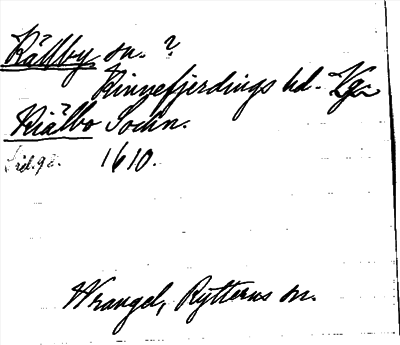 Källby sn. ?
Kinnefjerdings hd. Vg.
Kiälbo Sochn.
1610.
Wrangel, Rytterns sn.